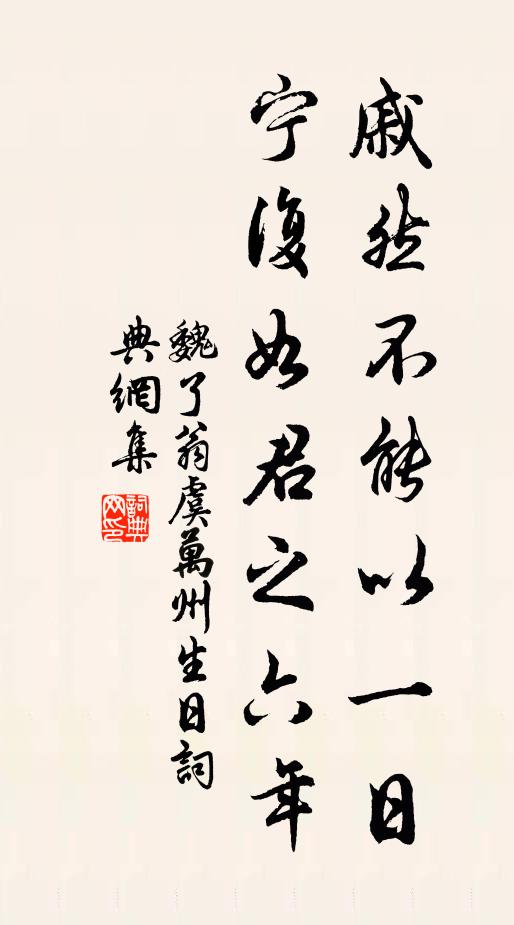 戚然不能以一日
宁復如君之六年
魏了翁虞萬州生日詞
典網集
詞典網印